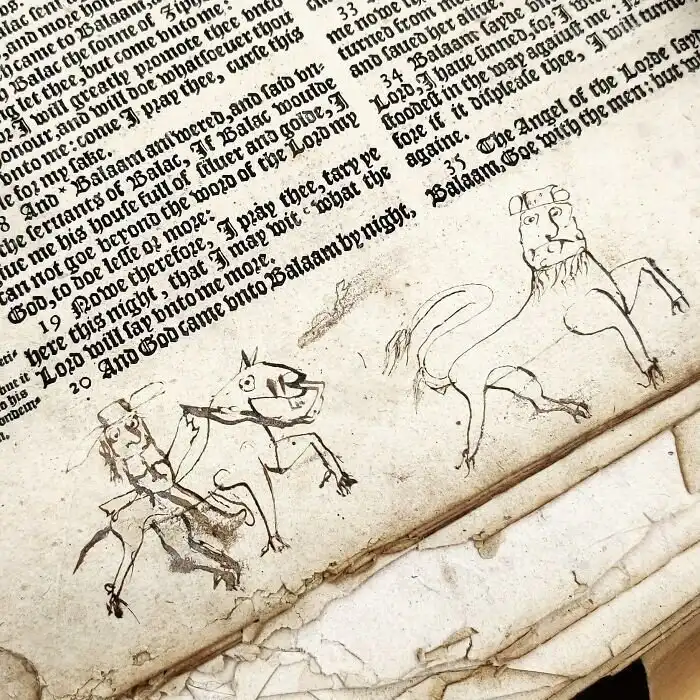 lac sent
and more honou
came to Balaam,
Balac the sonne of Zip
let thee, but come vnto me:
I will greatly promote thee vnto
honour, and will doe whatsoeuer thou
vnto me: come I pray thee, curse this
le for my sake.
8 And * Balaam answered, and said vn-
the seruants of Balac, If Balac woulde
giue me his house full of siluer and golde, I
can not goe beyond the word of the Lord my
God, to doe lesse or more:
19 Nowe therefore, I pray thee, tary ye
here this night, that I may wit what the
Lord will say vnto me more.
20 And God came vnto Balaam by night,
but it
33
me nowe
turned from me
and saued her aliue.
34 Balaam sayde
Lord, I haue sinned, for I
stoodest in the way against me:
fore if it displease thee, I will turne
againe.
35 The Angel of the Lorde said
Balaam, Goe with the men; but